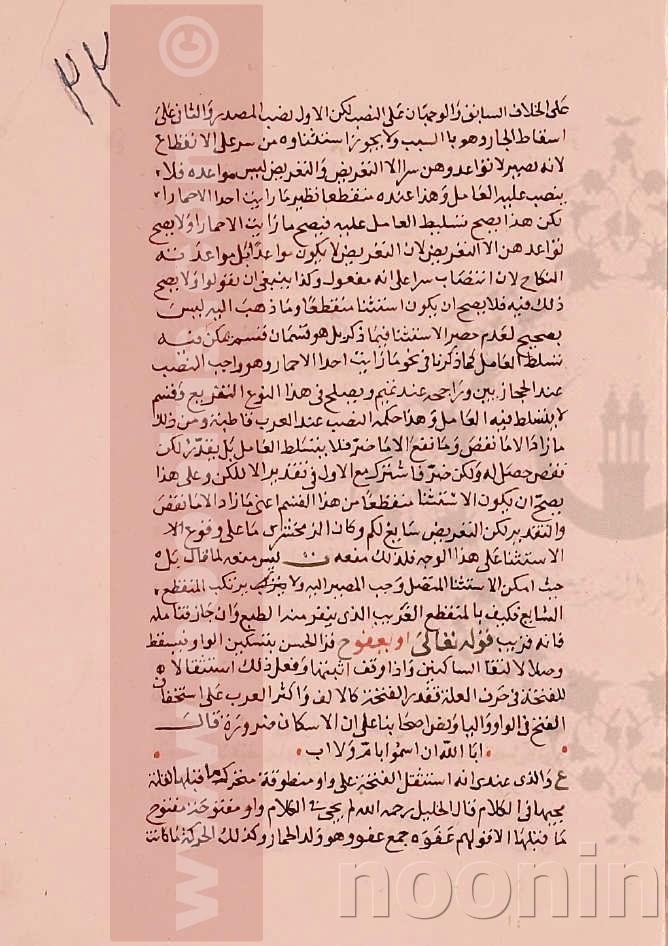 ٢٢
على الخلاف السابق والوجهان على النصب لكن الاول نصب المصدر والثاني على
اسقاط الجار وهو با السبب ولا يجوز استثناوه من سر على الانقطاع
لانه يصير لا تواعدوهن سرا الا التعريض والتعريض ليس مواعده فلا
ينصب عليه العامل وهذا عنده منقطعا نظير ما رايت احدا الا حمارا
لكن هذا يصح تسليط العامل عليه فيصح ما رايت الا حمارا ولا يصح
تواعدهن الا التعريض لان التعريض لا يكون مواعدا بل مواعد به
النكاح لان انتصاب سرا على انه مفعول وكذا ينبغي ان يقولوا ولا يصح
ذلك فيه فلا يصح ان يكون استثنا منقطعا وما ذهب اليه ليس
بصحيح لعدم حصر الاستثنا فيما ذكر بل هو قسمان قسم يمكن فيه
تسلط العامل كما ذكرنا في نحو ما رايت احدا الا حمار وهو واجب النصب
عند الحجازيين وراجحه عند تميم ويصلح في هذا النوع التفريع وقسم
لا يتسلط فيه العامل وهذا حكمه النصب عند العرب قاطبة ومن ذلك
ما زاد الا ما نقص وما نفع الا ما ضر فلا يتسلط العامل بل يقدر لكن
نقص حصل له ولكن ضر فاشترك مع الاول في تقدير الا بلكن وعلى هذا
يصح ان يكون الاستثنا منقطعا من هذا القسم اعني ما زاد الا ما نقص
والتقدير لكن التعريض سايغ لكم وكان الزمخشري ما على وقوع الا
الاستثنا على هذا الوجه فلذلك منعه ليس منعه لما قال بل
حيث امكن الاستثنا المتصل وجب المصير اليه ولا يرتكب المنقطع
الشايع فكيف بالمنقطع الغريب الذي ينفر منه الطبع وان جاز فتامله
فانه قريب قوله تعالى او يعفوا قرا الحسن بتسكين الواو فتسقط
وصلا لالتقا الساكنين واذا وقف اثبتها وفعل ذلك استثقالا
للفتحة في حرف العلة فتقدر الفتحة كالالف واكثر العرب على استخفاف
الفتح في الواو واليا ونص اصحابنا على ان الاسكان ضرورة قال
ابا الله ان اسموا بام ولا اب
ع والذي عندي انه استثقل الفتحة على واو متطرفة متحرك ما قبلها لقلة
مجيها في الكلام قال الخليل رحمه الله لم يجي في الكلام واو مفتوحة مفتوح
ما قبلها الا قولهم عفوه جمع عفو وهو ولد الحمار وكذلك الحركة ما كانت
noonin